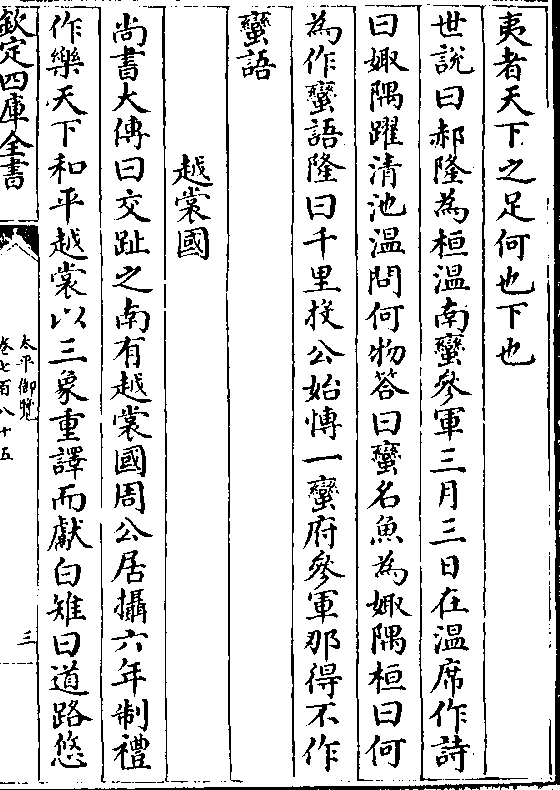 夷者天下之足何也下也
世說曰郝隆為桓溫南蠻參軍三月三日在溫席作詩
曰娵隅躍清池溫問何物答曰蠻名魚為娵隅桓曰何
為作蠻語隆曰千里投公始愽一蠻府參軍那得不作
蠻語
越裳國
尚書大傳曰交趾之南有越裳國周公居攝六年制禮
作樂天下和平越裳以三象重譯而獻白雉曰道路悠
欽定四庫全書
太平御覽
卷七百八十五
三